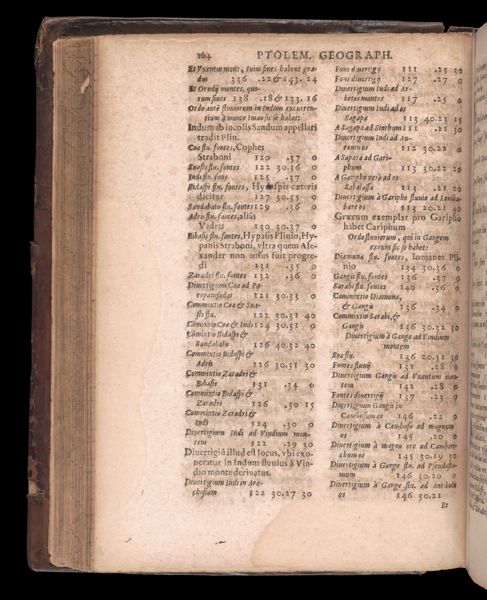 264 PTOLEM. GEOGRAPH.
Et Vxentus mons, cuius fines habent gra-
dus 136 .22 & 143. 24
Et Orudij montes, quo-
rum fines 138 .18 & 133. 16
Ordo autē fluuiorum in Indum excurren-
tium à monte Imao sic se habet:
Indum ab incolis Sandum appellari
tradit Plin.
Coæ flu. fontes, Cophes
Straboni 120 .37 0
Suasti flu. fontes 122 30.36 0
Indi flu. fons 125 .37 0
Bidaspi flu. fontes, Hydaspis cæteris
dicitur 127 30.35 0
Sandabalis flu. fontes 129 .36 0
Adris flu. fontes, aliâs
Vadris 130 30.37 0
Bibasis flu. fontes, Hypasis Plinio, Hy-
panis Straboni, vltra quem Ale-
xander non ausus fuit progre-
di 131 .35 0
Zaradri flu. fontes 132 .36 0
Diuertigium Coæ ad Pa-
ropanisadas 121 30.33 0
Commixtio Coæ & Sua-
sti flu. 122 30.31 40
Comixtio Coæ & Indi 124 30.31 0
Cōmixtio Bidaspi &
Sandabalis 126 40.32 40
Commixtio Bidaspi &
Adris 126 30.31 30
Commixtio Zaradri &
Bibasis 131 .34 0
Commixtio Bidaspi &
Zaradri .30 15
Commixtio Zaradri &
Indi 124 .30 0
Diuertigium Indi ad Vindium mon-
tem 122 .29 30
Diuertigiū illud est locus, vbi exo-
neratur in Indum fluuius à Vin-
dio monte deriuatus.
Diuertigium Indi in Ara-
chosiam 122 30.27 30
Fons diuertigij 111 .25 30
Fons diuertigij 127 .27 0
Diuertigium Indi ad Ar-
betos montes 117 .25 0
Diuertigium Indi ad os
Sagapa 113 40.23 15
A Sagapa ad Sinthum 111 .21 30
Diuertigium Indi ad Au-
reum os 112 30.22 0
A Sapara ad Gari-
phum 113 30.22 20
A Garipho verò ad os
Sabalassa 113 .21 20
Diuertigium à Garipho fluuio ad Lonib-
bare os 113 20.21 40
Græcum exemplar pro Garipho
habet Cariphum
Ordo fluuiorum, qui in Gangem
exeunt sic se habet:
Diamunæ flu. fontes, Iomanes Pli-
nio 134 30.36 0
Gangis flu. fontes 136 .37 0
Sarabi flu. fontes 140 .36 0
Commixtio Diamunæ,
& Gangis 136 .34 0
Commixtio Sarabi, &
Gangis 136 30.32 30
Diuertigium à Gange ad Vindium
montem
Soæ flu. 136 20.31 30
Fontes fluuij 131 .28 0
Diuertigium Gangis ad Vxentum mon-
tem 142 .28 0
Fontes diuertigij 137 .23 0
Diuertigium Gangis in
Cambusum os 146 .22 0
Diuertigium à Cambuso ad magnum
os 145 .20 0
Diuertigium à magno ore ad Camberi-
chum os 145 30.19 30
Diuertigium à Gange flu. ad Pseudosto-
mum 146 30.20 0
Diuertigium à Gange flu. ad Antibola
os 146 30.21
Et